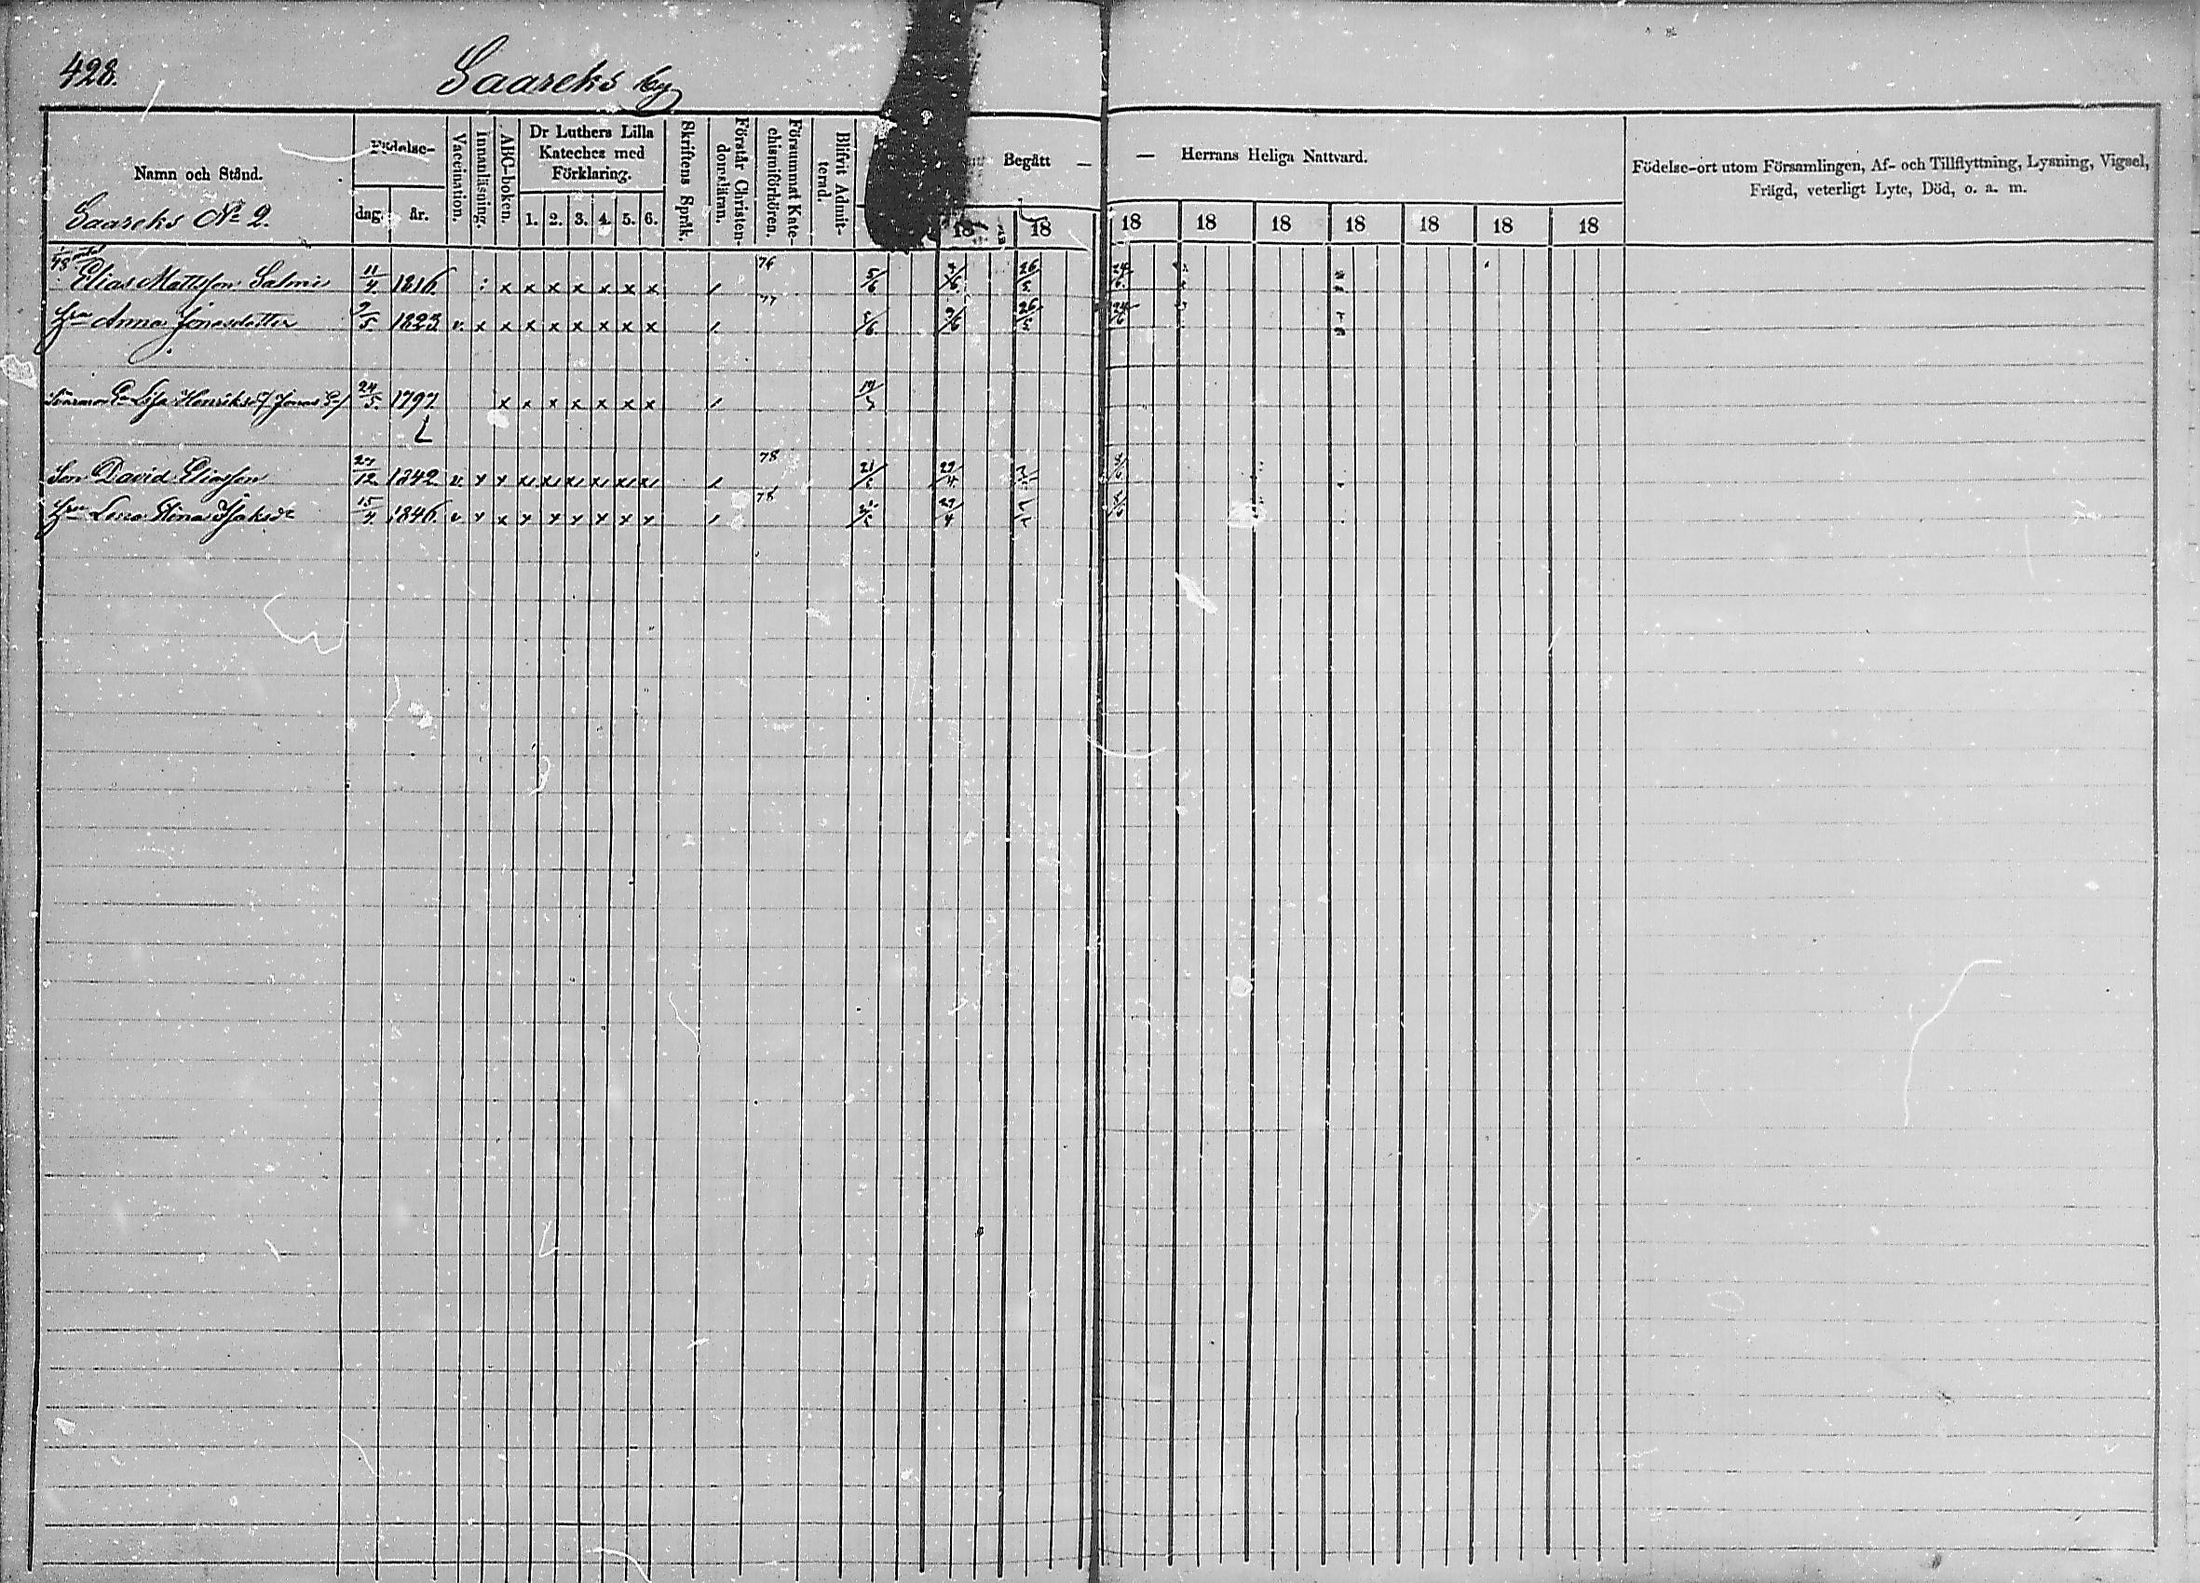 428.
Saareks by
Namn och Stånd.
Födelse-
dag.
år.
Vaccination.
Innanläsning.
ABC-boken.
Dr Luthers Lilla
Kateches med
Förklaring.
1. 2. 3. 4. 5. 6.
Skriftens Språk.
Förstår Christen-
domsläran.
Försummat Kate-
chismiförhören.
Blifvit Admit-
terad.
Begått —
— Herrans Heliga Nattvard.
18 18 18 18 18 18 18 18 18
Födelse-ort utom Församlingen, Af- och Tillflyttning, Lysning, Vigsel,
Frägd, veterligt Lyte, Död, o. a. m.
Saareks № 2.
1/48 Elias Mattsson Salmi 11/4 1816. x x x x x x x / 76 5/6 26/5 24/6
Hru Anna Jonasdotter 9/5 1823 v. x x x x x x x x / 77 5/6 9/6 26/5 24/6
Lisa Henriksd / Jonas E/ 24/5 1797 x x x x x x x /
Son David Eliasson 27/12 1842 v. x x x x x x x x / 78 21/5 29/4
Hru Lena Stina Isaksdr 15/4 1846. v x x x x x x x x / 78 29/4